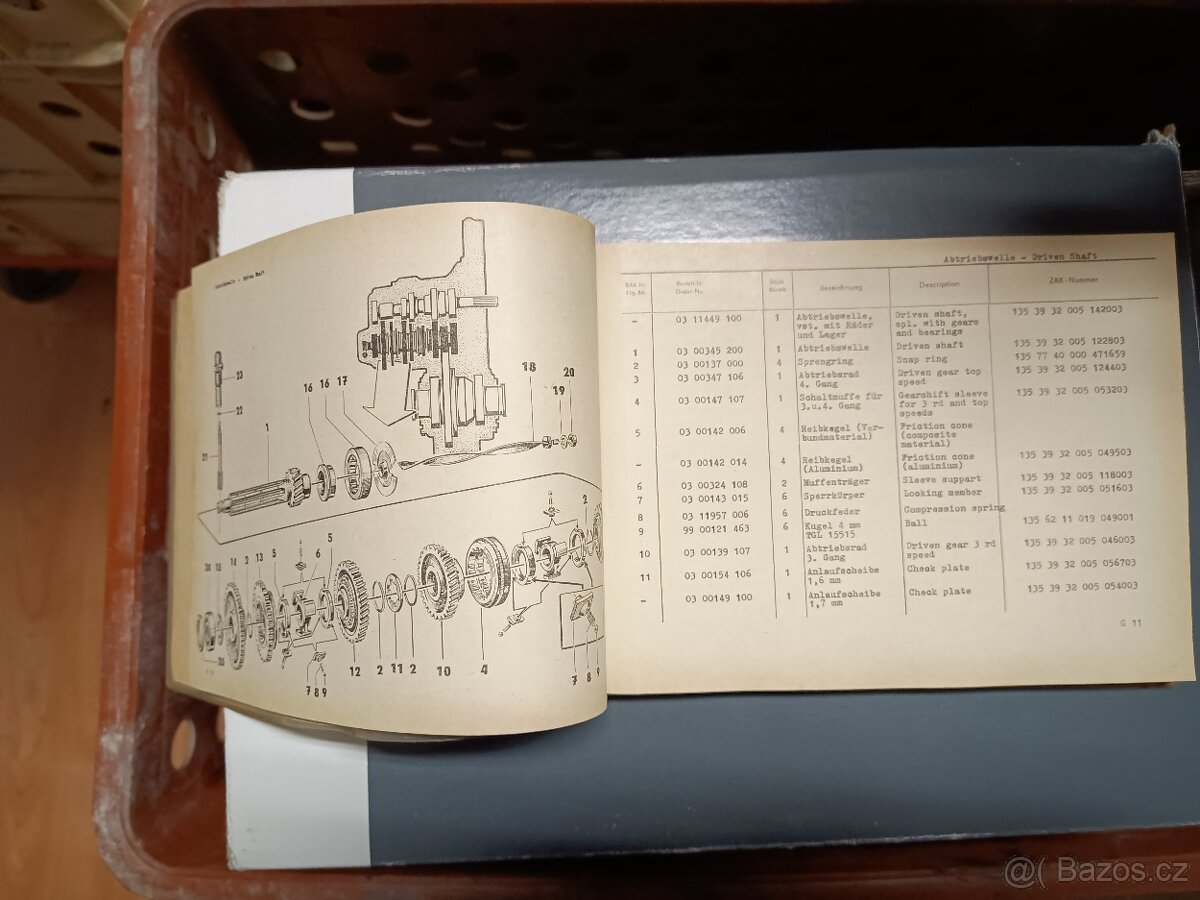 Abtriebswelle - Driven Shaft
23
22
1
21
16 16 17
18
20
19
5
2
14
2
13
5
6
12 2 11 2 10 4
7 8 9
7
8
9
Abtriebswelle - Driven Shaft
Bild Nr. Bestell-Nr. Stück Bezeichnung Description ZAK-Nummer
Fig. Nr. Order-No.
- 03 11449 100 1 Abtriebswelle, Driven shaft, 135 39 32 005 142003
vst. mit Räder cpl. with gears
und Lager and bearings
1 03 00345 200 1 Abtriebswelle Driven shaft 135 39 32 005 122803
2 03 00137 000 4 Sprengring Snap ring 135 77 40 000 471659
3 03 00347 106 1 Abtriebsrad Driven gear top 135 39 32 005 124403
4. Gang speed
4 03 00147 107 1 Schaltmuffe für Gearshift sleeve 135 39 32 005 053203
3.u.4. Gang for 3 rd and top
speeds
5 03 00142 006 4 Reibkegel (Ver- Friction cone
bundmaterial) (composite
material)
- 03 00142 014 4 Reibkegel Friction cone 135 39 32 005 049503
(Aluminium) (aluminium)
6 03 00324 108 2 Muffenträger Sleeve suppart 135 39 32 005 118003
7 03 00143 015 6 Sperrkörper Looking member 135 39 32 005 051603
8 03 11957 006 6 Druckfeder Compression spring
9 99 00121 463 6 Kugel 4 mm Ball 135 62 11 019 049001
TGL 15515
10 03 00139 107 1 Abtriebsrad Driven gear 3 rd 135 39 32 005 046003
3. Gang speed
11 03 00154 106 1 Anlaufscheibe Check plate 135 39 32 005 056703
1,6 mm
- 03 00149 100 1 Anlaufscheibe Check plate 135 39 32 005 054003
1,7 mm
G 11
@( Bazos.cz